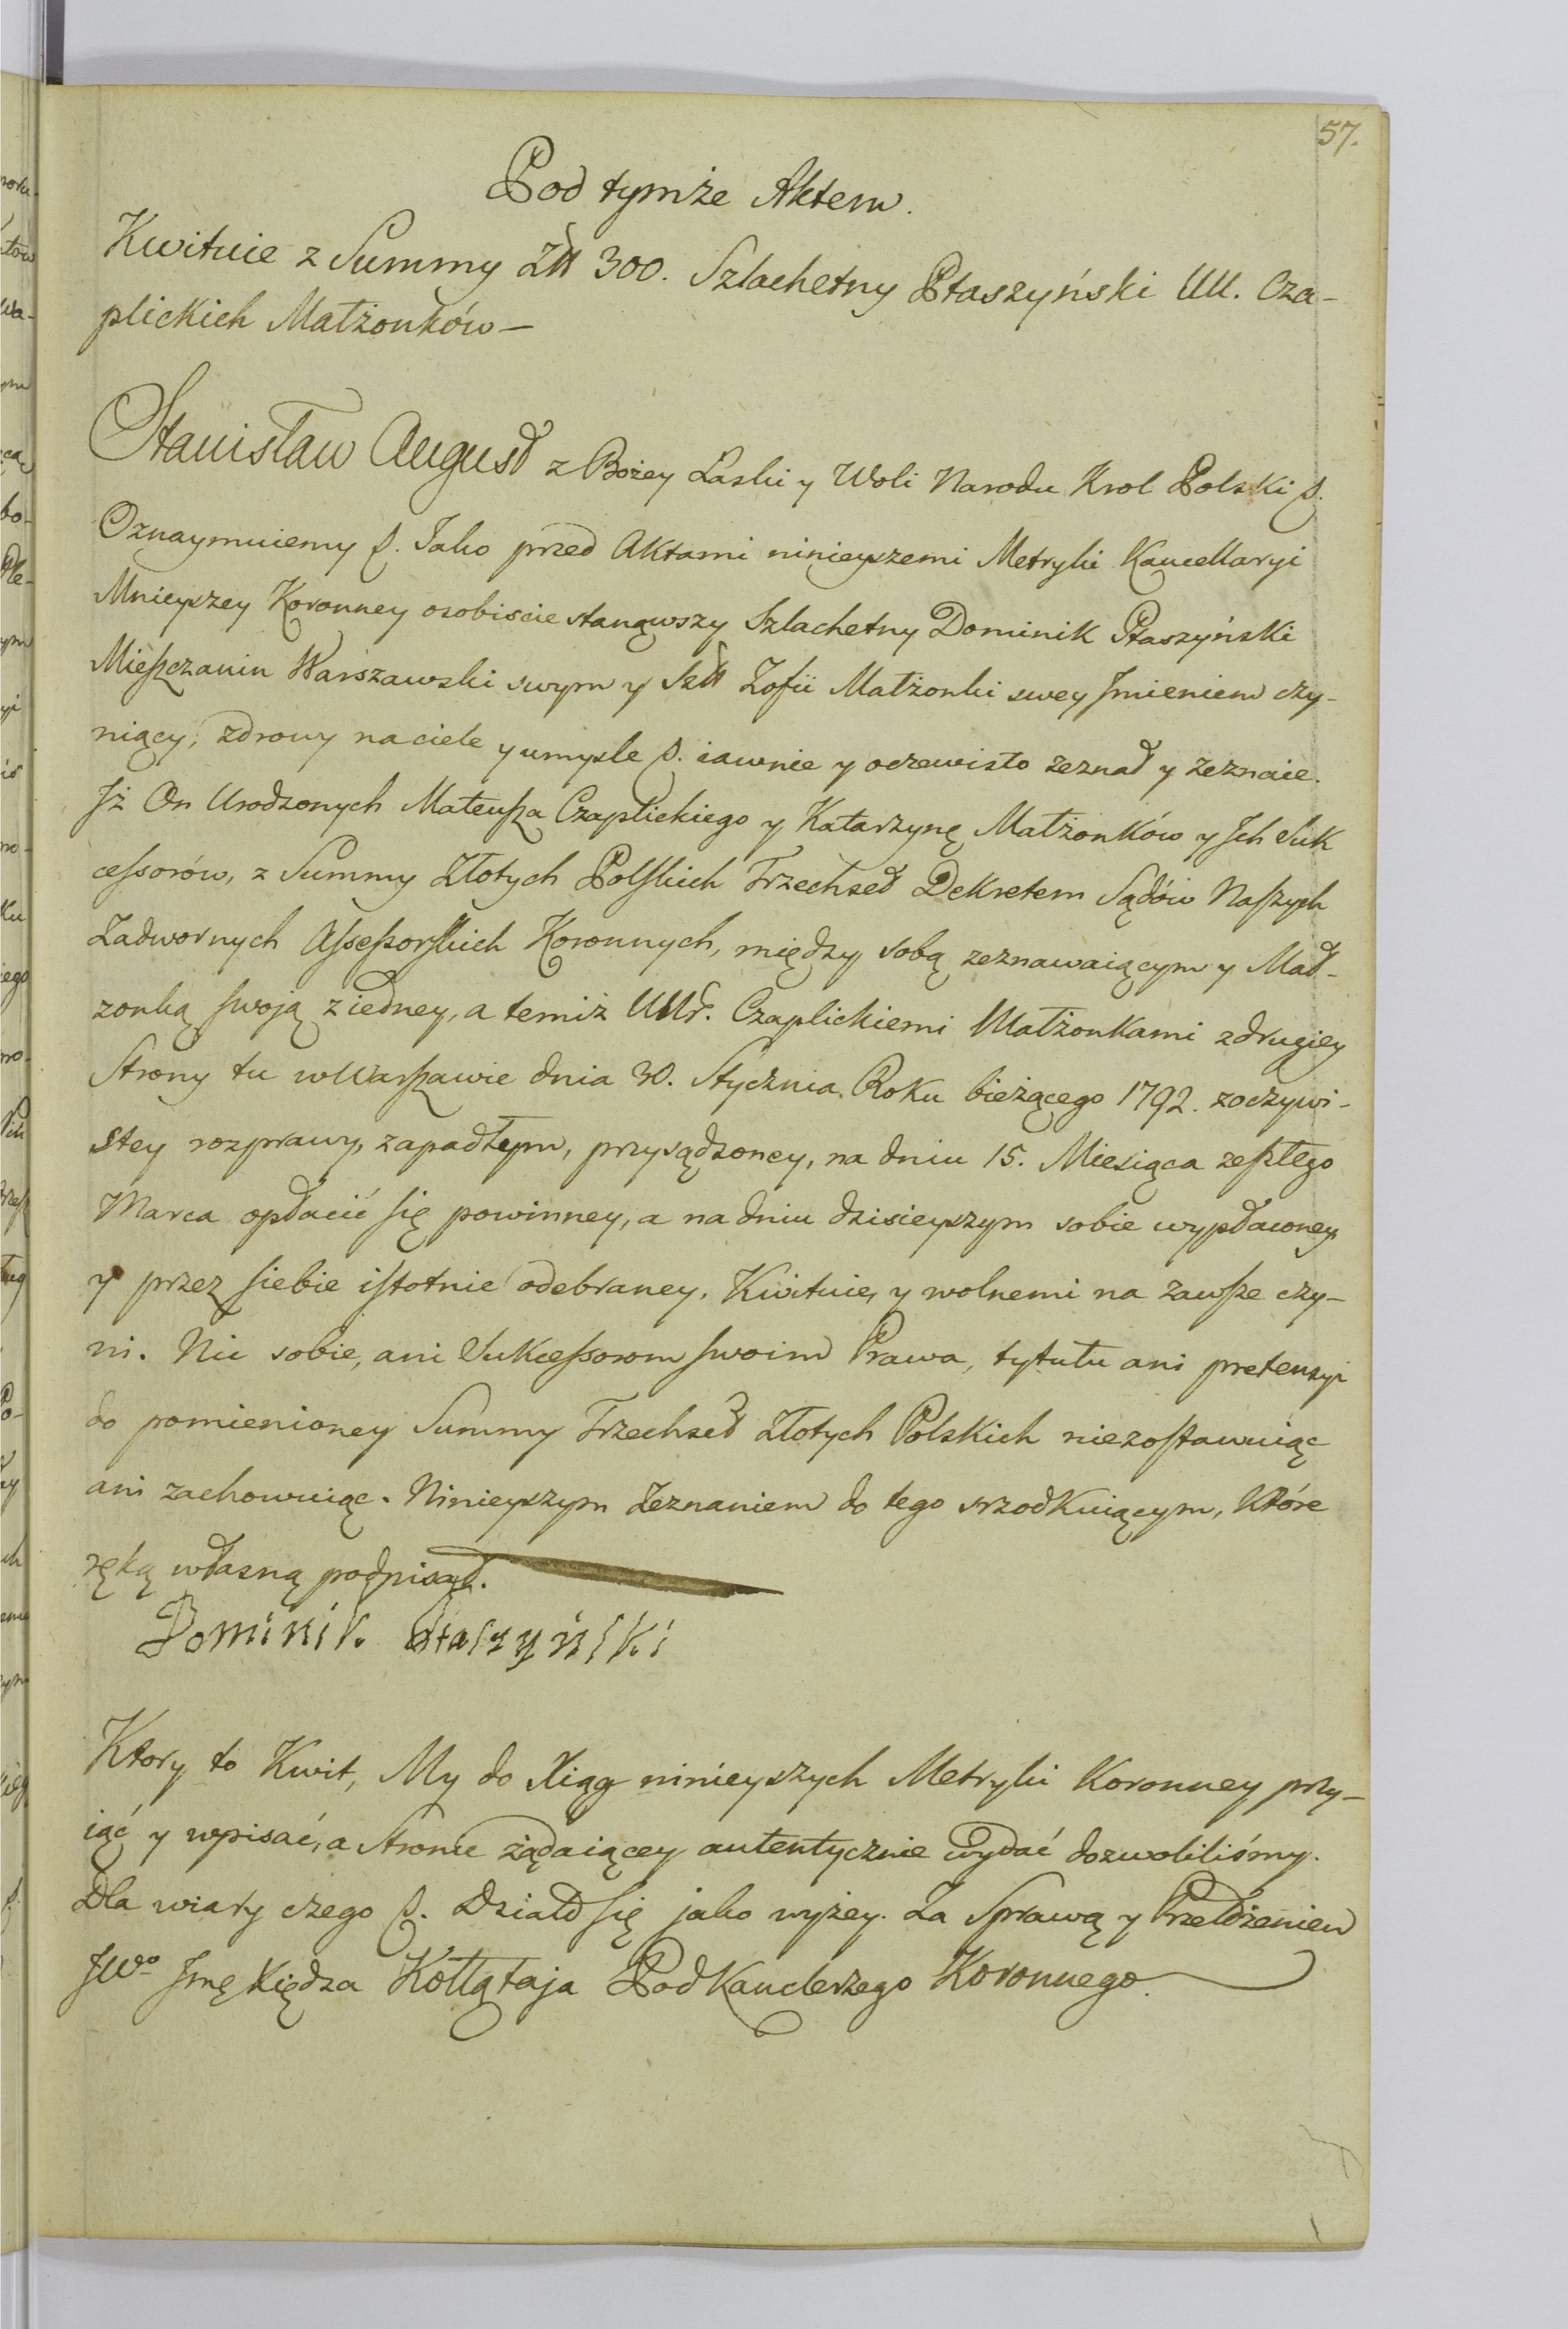 57.
Pod tymże Aktem.
Kwituie z Summy Złł 300. Szlachetny Ptaszyński UU. Cza-
plickich Małżonków —
Stanisław August z Bożey Łaski y Woli Narodu Krol Polski p.
Oznaymuiemy p. Jako przed Aktami ninieyszemi Metryki Kancellaryi
Mnieyszey Koronney osobiscie stanąwszy Szlachetny Dominik Ptaszyński
Mieszczanin Warszawski swym y Szltt Zofii Małżonki swey Jmieniem czy-
niący, zdrowy na ciele y umysle p. iawnie y oczewisto zeznał y zeznaie.
Jż On Urodzonych Mateusza Czaplickiego y Katarzynę Małżonków y Jch Suk
cessorów, z Summy Złotych Polskich Trzechset Dekretem Sądów Naszych
Zadwornych Assessorskich Koronnych, między sobą zeznawaiącym y Mał-
zonką swoją z iedney, a temiż UUr. Czaplickiemi Małżonkami z drugiey
Strony tu w Warszawie dnia 30. Stycznia Roku bieżącego 1792. zoczywi-
stey rozprawy, zapadłym, przysądzoney, na dniu 15. Miesiąca zeszłego
Marca opłacić się powinney, a na dniu dzisieyszym sobie wypłaconey,
y przez siebie istotnie odebraney, Kwituie, y wolnemi na zawsze czy-
ni. Nic sobie, ani Sukcessorom swoim Prawa, tytułu ani pretensyi
do pomienioney Summy Trzechset Złotych Polskich niezostawuiąc
ani zachowuiąc. Ninieyszym Zeznaniem do tego srzodkuiącym, Które
ręką własną podpisał.
Dominik Ptaszyński
Ktory to Kwit, My do Xiąg ninieyszych Metryki Koronney przy-
iąć y wpisać, a Stronie żądaiącey autentycznie wydać dozwoliliśmy.
Dla wiary czego p. Działo się jako wyżey. Za Sprawą y Przełożeniem
JWo Jmę Xiędza Kołłątaja Podkanclerzego Koronnego.